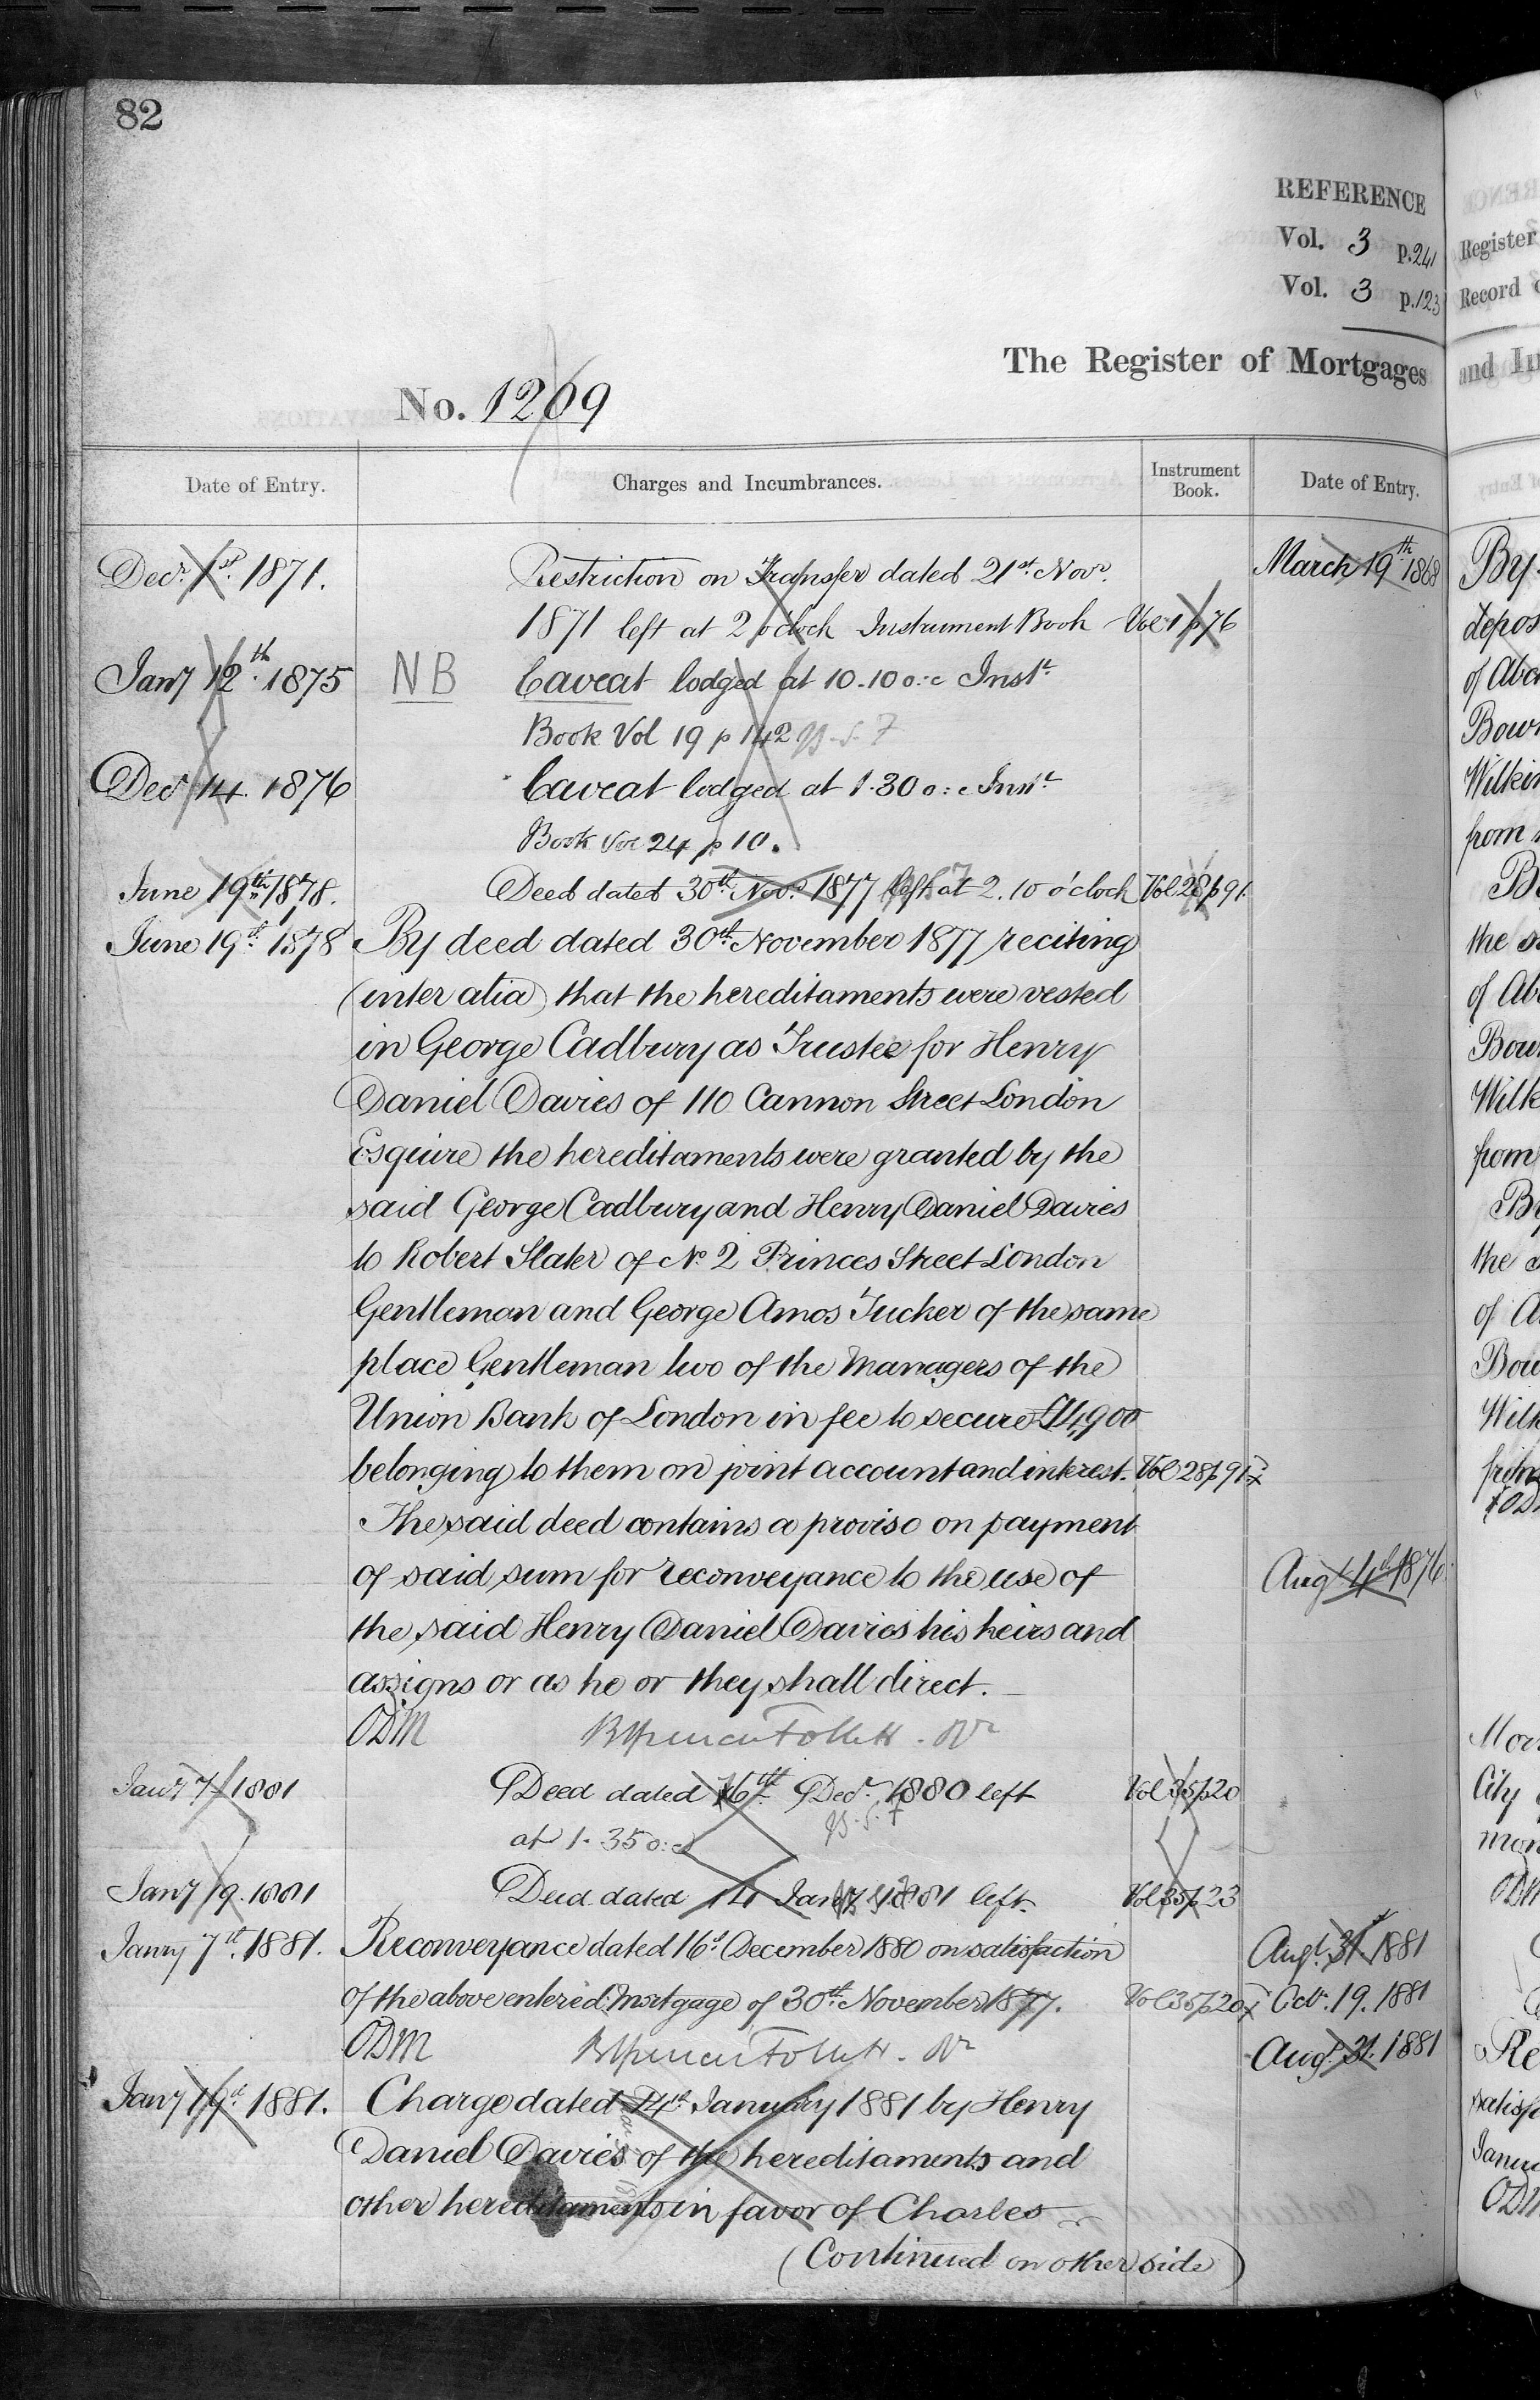 82
REFERENCE
Vol. 3 p.241
Vol. 3 p.123
The Register of Mortgages
No. 1269
Date of Entry. Charges and Incumbrances. Instrument Book. Date of Entry.
Decr. 1st. 1871. Restriction on Transfer dated 21st Novr. March 19th 1868
1871 left at 2 o'clock Instrument Book Vol 1 p 76
Jany 12th. 1875 NB Caveat lodged at 10.10 o:c Inst.t
Book Vol 19 p 142
Decr 14. 1876 Caveat lodged at 1.30 o:c Inst.t
Book Vol 24 p 10.
June 19th 1878. Deed dated 30th Novr. 1877 left at 2.10 o'clock Vol 28 p 91.
June 19th. 1878 By deed dated 30th November 1877 reciting
(inter alia) that the hereditaments were vested
in George Cadbury as Trustee for Henry
Daniel Davies of 110 Cannon Street London
Esquire the hereditaments were granted by the
said George Cadbury and Henry Daniel Davies
to Robert Slater of No. 2 Princes Street London
Gentleman and George Amos Tucker of the same
place Gentleman two of the Managers of the
Union Bank of London in fee to secure £14,900
belonging to them on joint account and interest. Vol 28 p 91 x
The said deed contains a proviso on payment
of said sum for reconveyance to the use of Augt. 4th 1876
the said Henry Daniel Davies his heirs and
assigns or as he or they shall direct.
ODM
Jany 7 1881 Deed dated 16th Decr. 1880 left Vol 35 p 20
at 1.35 o:c
Jany 19. 1881 Deed dated 14 Jany 1881 left Vol 35 p 23
Janry 7th. 1881. Reconveyance dated 16th December 1880 on satisfaction Augt. 31. 1881
of the above entered Mortgage of 30th November 1877. Vol 35 p 20 x Oct. 19. 1881
ODM Augt. 31. 1881
Jany 19th 1881. Charge dated 14th January 1881 by Henry
Daniel Davies of the hereditaments and
other hereditaments in favor of Charles
(Continued on other side)
Register
Record
and In
By
depos
of Abc
Bow
Wilkin
from
the
of Ab
Bow
Wilk
from
the
of A
Bow
Wilk
City
Re
satisf
Janu
ODM